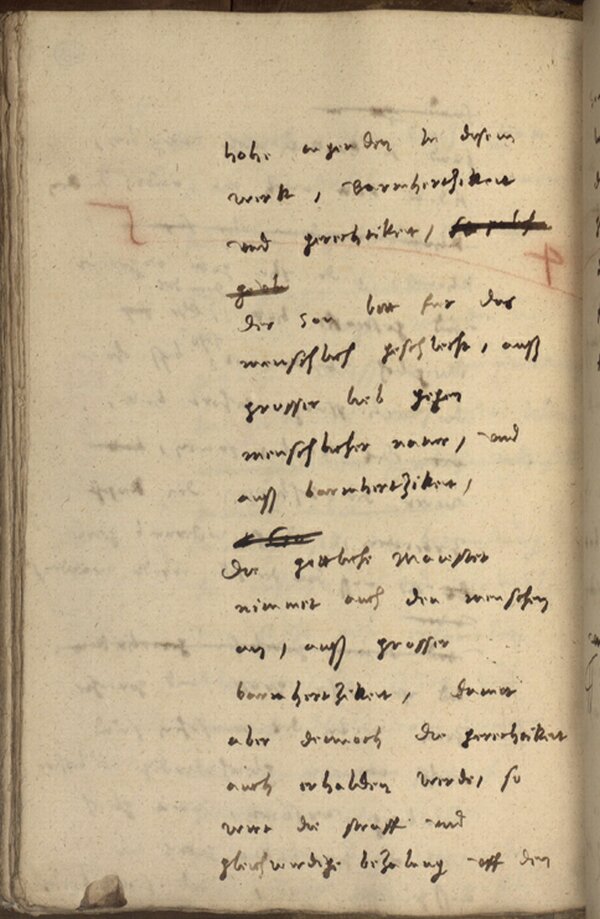 hohe angenden in disem
werk, Barmhertzikeit
und gerechtikeit,
der Son bott fur das
menschlich geschlecht, auß
grosser lieb gegen
menschlicher natur, und
auß barmhertzikeit,
Die gottliche Maiestet
nimmet auch den menschen
an, auß grosser
barmhertzikeit, damit
aber dennoch die gerechtikeit
auch erhalden werde, so
wirt die straff und
gleichwirdige bezalung uff den
5
4